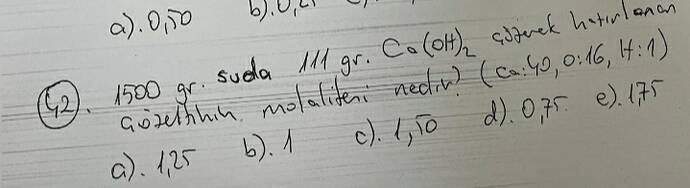 a). 0,50 b). 0,2
42. 1500 gr. suda 111 gr. Ca(OH)₂ çözerek hazırlanan
çözeltinin molalitesi nedir? (Ca:40, O:16, H:1)
a). 1,25 b). 1 c). 1,50 d). 0,75 e). 1,75